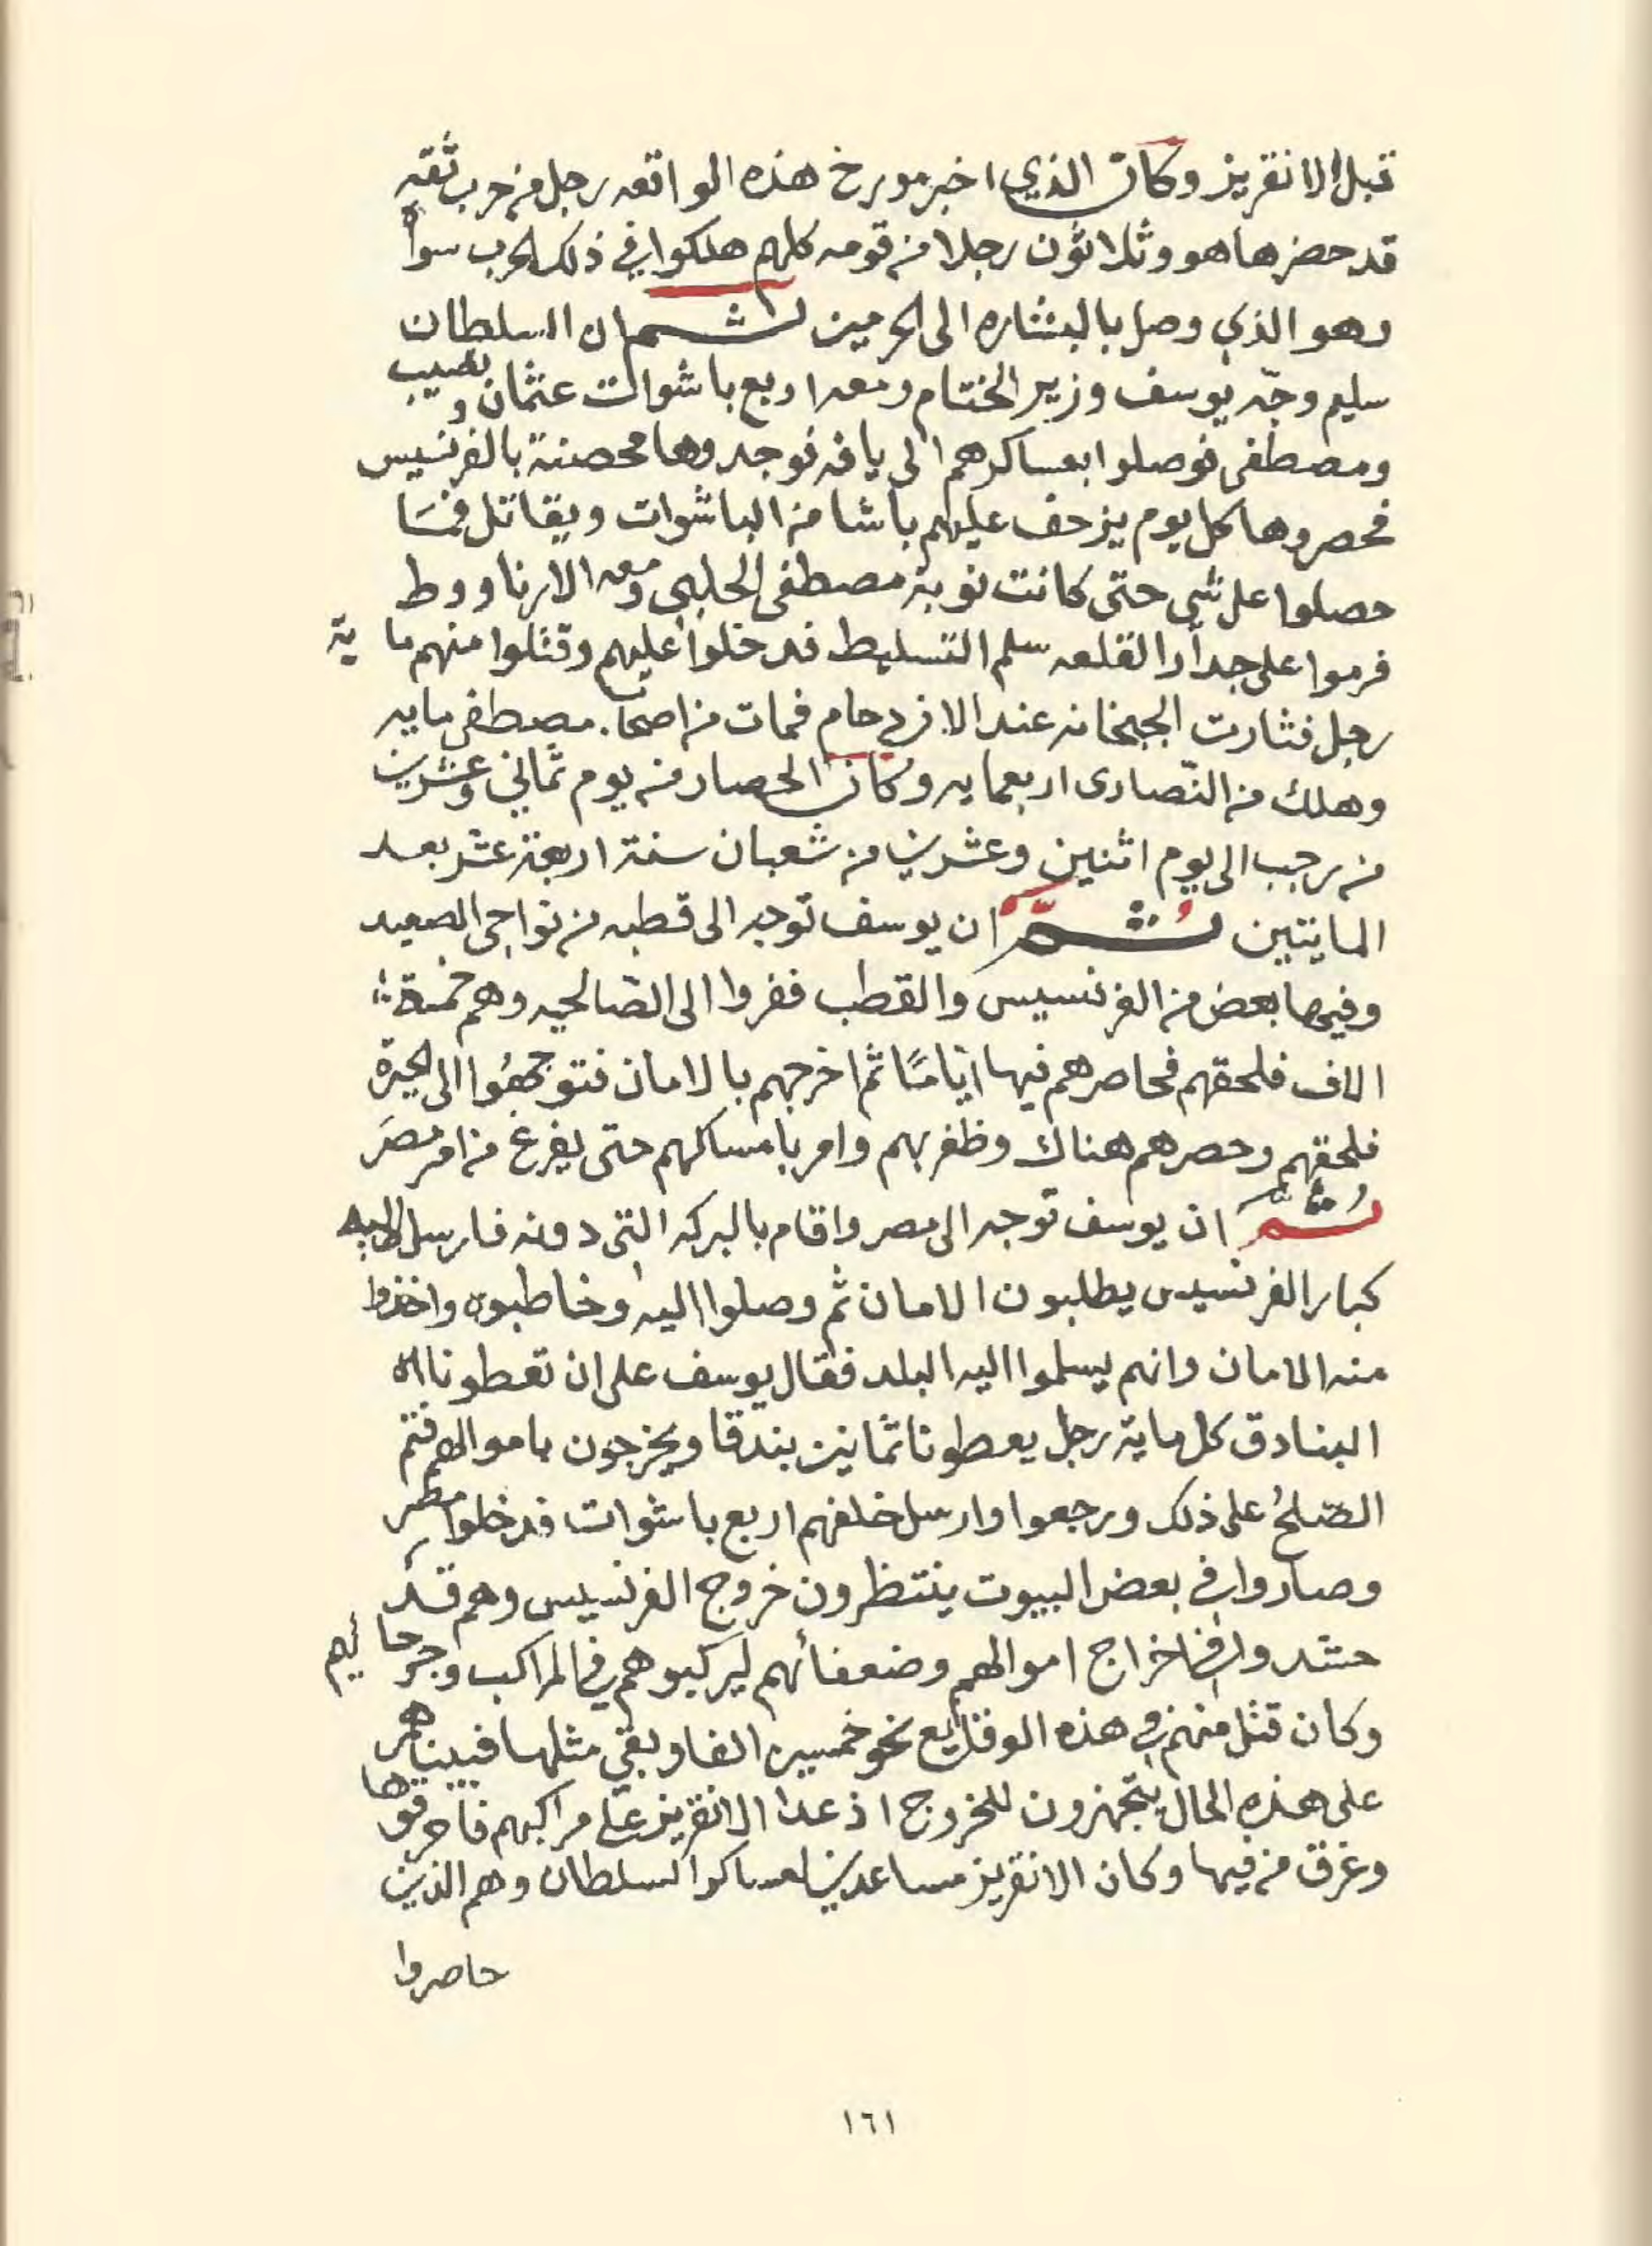 قبل الانقريز وكان الذي اخبر مورخ هذه الواقعه رجل من حرب ثقه
قد حضرها هو وثلاثون رجلا من قومه كلهم هلكوا في ذلك الحرب سواه
وهو الذي وصل بالبشاره الى الحرمين ثم ان السلطان
سليم وجّه يوسف وزير الختام ومعه اربع باشوات عثمان ونصيب
ومصطفى فوصلوا بعساكرهم الى يافه فوجدوها محصنة بالفرنسيس
فحصروها كل يوم يزحف عليهم باشا من الباشوات ويقاتل فمسَا
حصلوا على شي حتى كانت نوبة مصطفى الحلبي ومعه الارناووط
فرموا على جدار القلعه سلم التسليط فدخلوا عليهم وقتلوا منهم ماية
رجل فثارت الجبخانه عند الازدحام فمات من اصحاب مصطفى مايه
وهلك من النّصارى اربعمايه وكان الحصار من يوم ثماني وعشرين
من رجب الى يوم اثنين وعشرين من شعبان سنة اربعة عشر بعد
المايتين ثُمَّ ان يوسف توجه الى قطبه من نواحي الصعيد
وفيها بعض من الفرنسيس والقطب ففروا الى الصّالحيه وهم خمسة
الاف فلحقهم فحاصرهم فيها ايّامًا ثم اخرجهم بالامان فتوجهُوا الى الجيزة
فلحقهم وحصرهم هناك وظفر بهم وامر بامساكهم حتى يفرغ من امر مصرَ
ثُمَّ ان يوسف توجه الى مصر واقام بالبركه التي دونه فارسل اليه
كبار الفرنسيس يطلبون الامان ثم وصلوا اليه وخاطبوه واخذوا
منه الامان وانهم يسلموا اليه البلد فقال يوسف على ان تعطونا
البنادق كل ماية رجل يعطونا ثمانين بندقا ويخرجون باموالهم فتم
الصّلحُ على ذلك ورجعوا وارسل خلفهم اربع باشوات فدخلوا مصر
وصاروا في بعض البيوت ينتظرون خروج الفرنسيس وهم قد
حشدوا في اخراج اموالهم وضعفائهم ليركبوهم في المراكب وجرحائهم
وكان قتل منهم في هذه الوقايع نحو خمسين الفا وبقي مثلها فبينا هم
على هذه الحال يتجهزون للخروج اذ عدا الانقريز على مراكبهم فاحرقوها
وغرق من فيها وكان الانقريز مساعدين لعساكر السلطان وهم الذين
حاصروا
١٦١